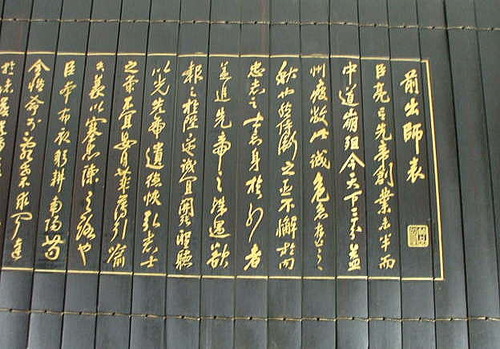 前出師表
臣亮言先帝創業未半而
中道崩殂今天下三分益
州疲敝此誠危急存亡之
秋也然侍衛之臣不懈於內
忠志之士忘身於外者
蓋追先帝之殊遇欲
報之於陛下誠宜開張聖聽
以光先帝遺德恢弘志士
之氣不宜妄自菲薄引喻
失義以塞忠諫之路也
臣本布衣躬耕南陽苟
全性命於亂世不求聞達
於諸侯